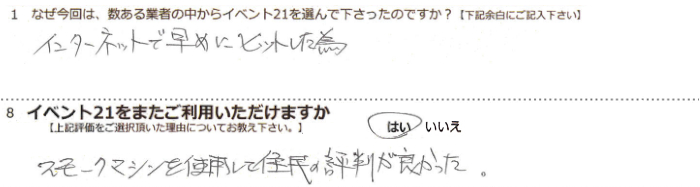 1 なぜ今回は、数ある業者の中からイベント21を選んで下さったのですか？【下記余白にご記入下さい】
インターネットで早めにヒットした為
8 イベント21をまたご利用いただけますか
【上記評価をご選択頂いた理由についてお教え下さい。】
はい いいえ
スモークマシンを使用して住民の評判が良かった。